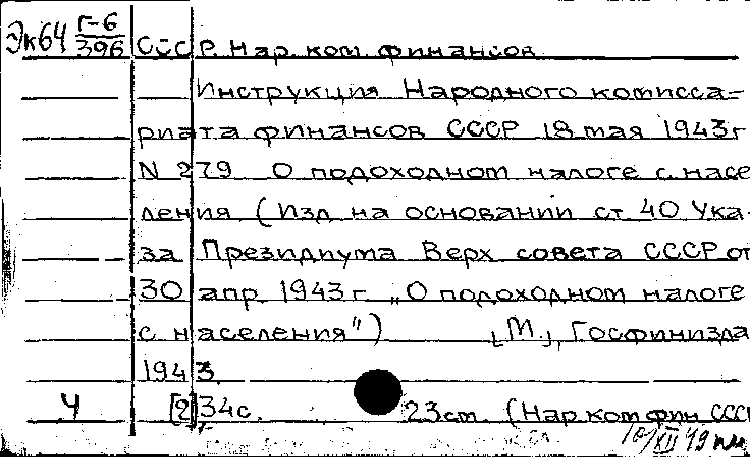 Эк64 Г-6/396 СССР. Нар. ком. финансов
Инструкция Народного комисса-
риата финансов СССР 18 мая 1943г
N 279 О подоходном налоге с насе
ления (Изд. на основании ст 40 Ука-
за Президиума Верх совета СССР от
30 апр 1943г. „О подоходном налоге
с населения") [М.], Госфиниздa
1943.
Ч [2] 34с. 23см. (Нар. ком фин ССС
10/XII 49